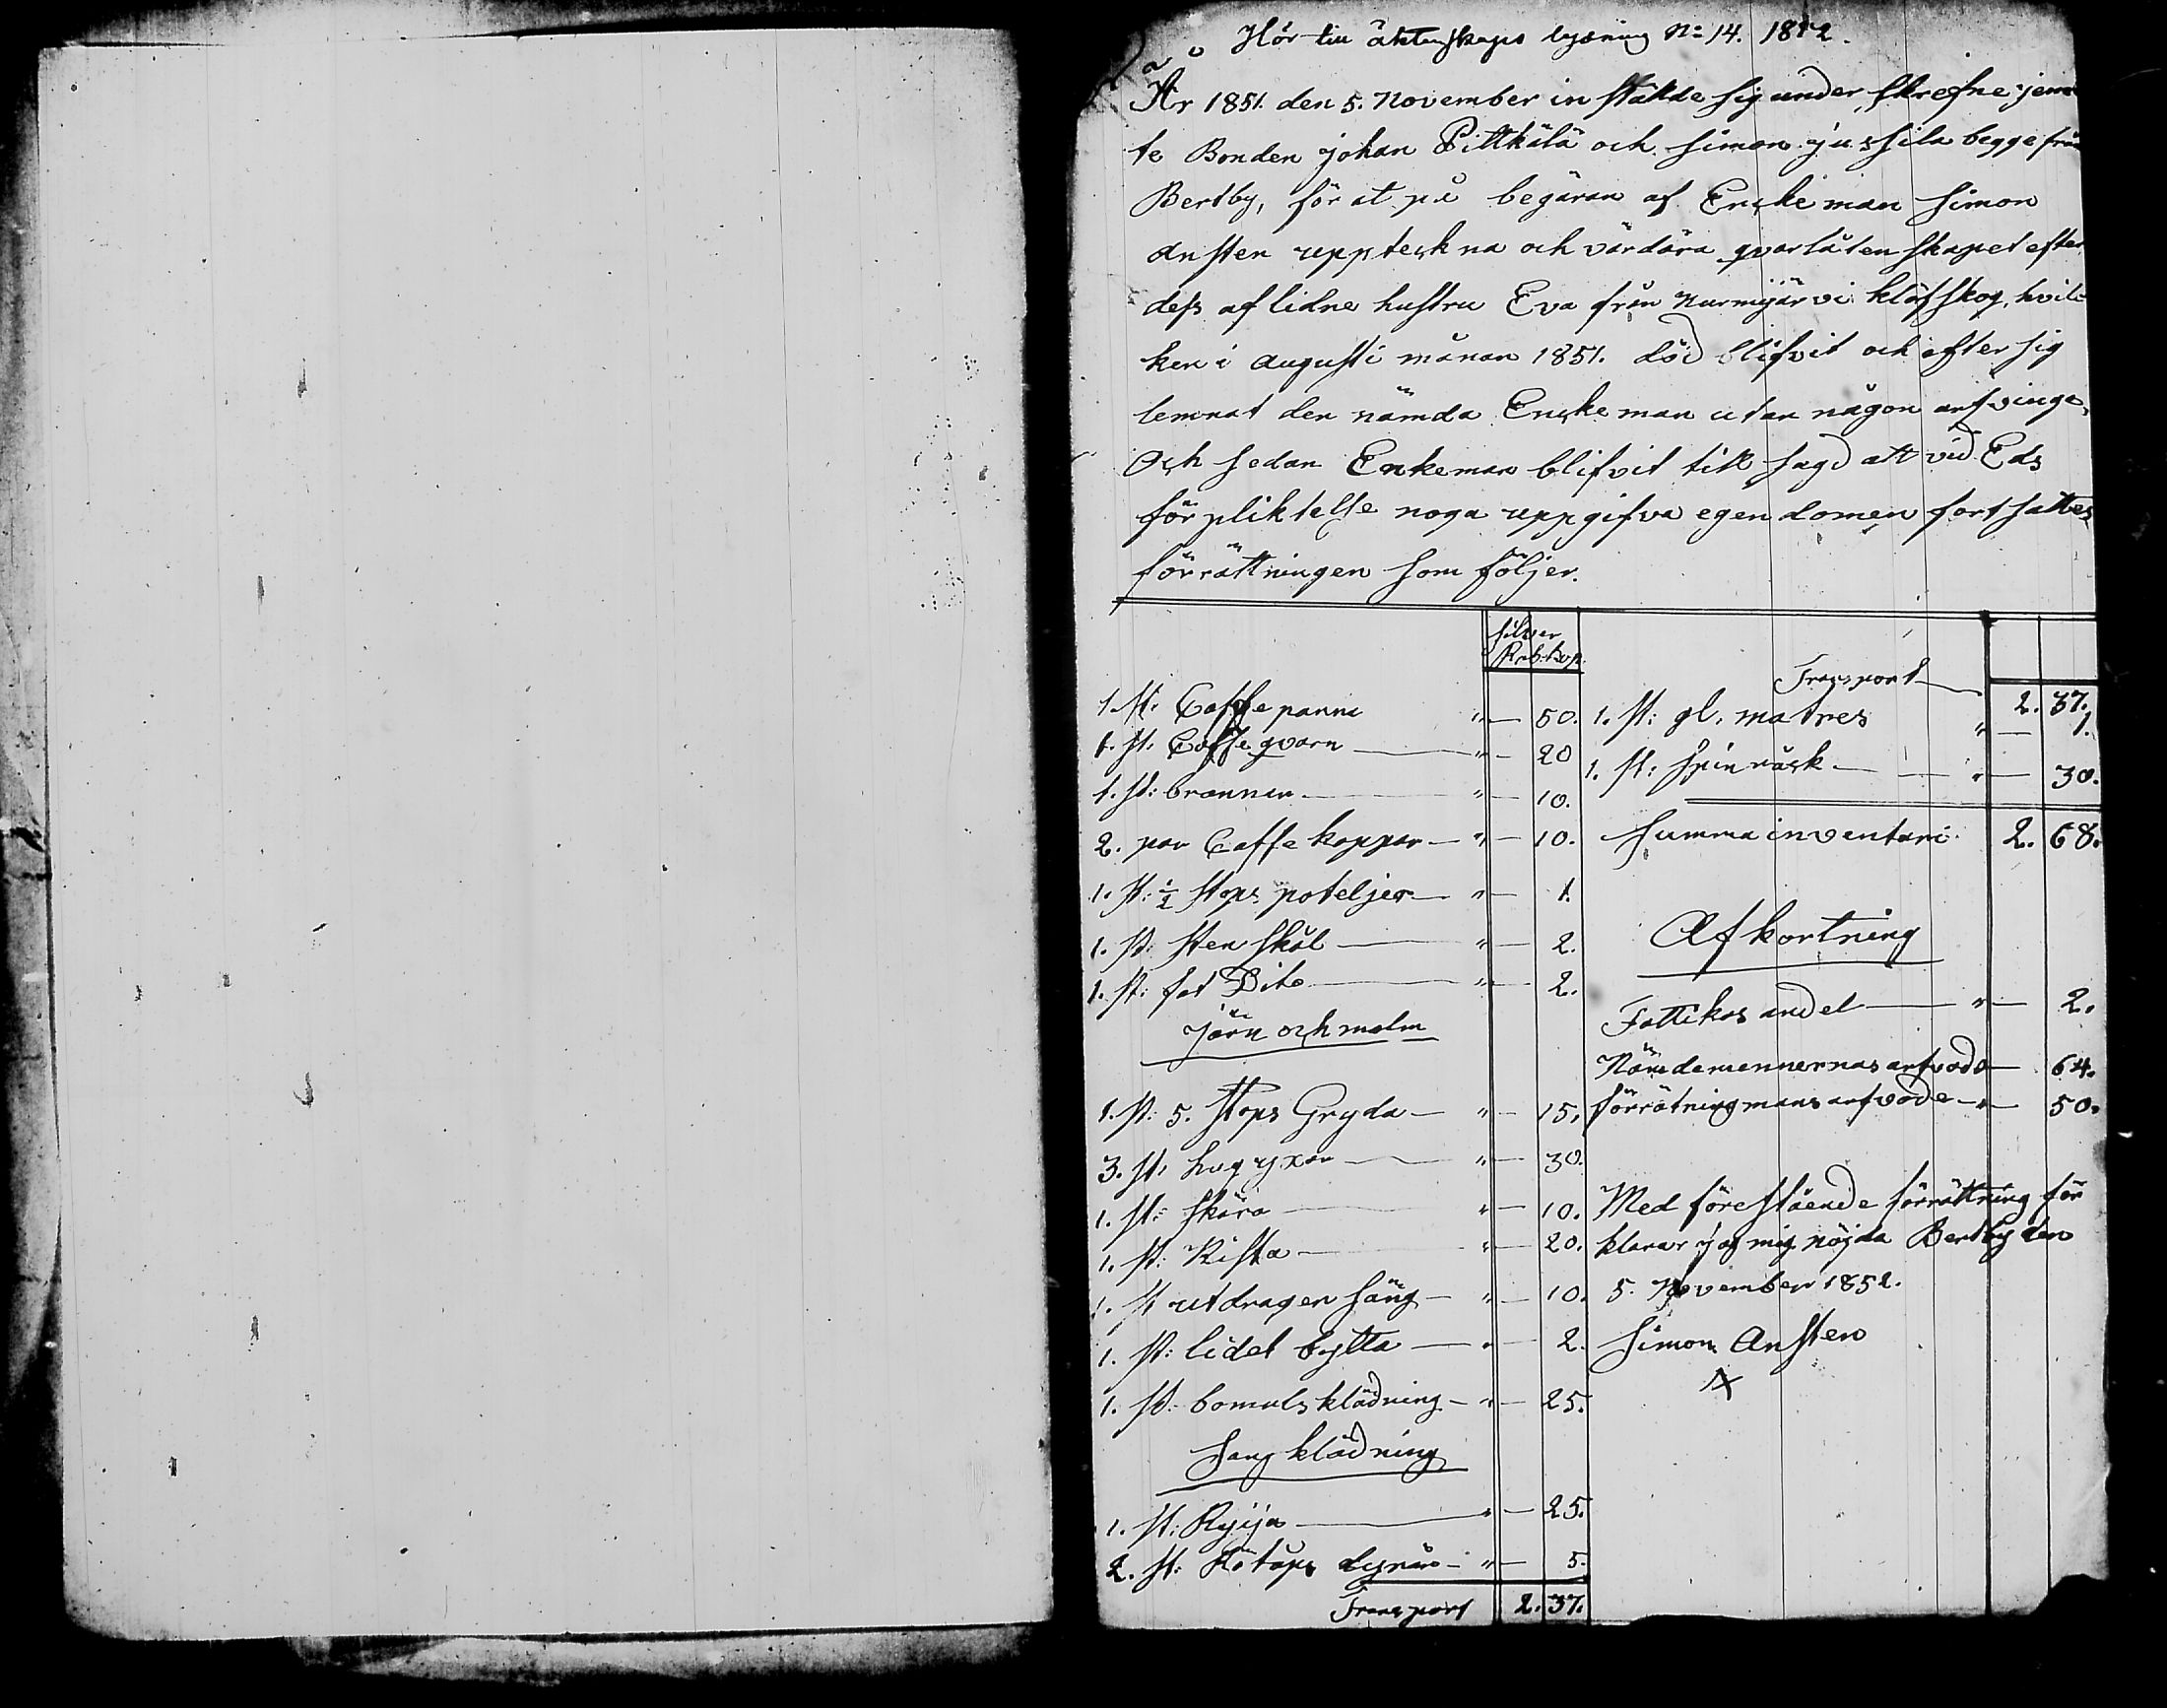 Hör till äktenskaps lysning No 14. 1852.
År 1851. den 5. November in stälde sig under skrefne jem
te Bonden johan Pittkälä och Simon jussila begge från
Bertby, för at på begäran af Enckeman Simon
Ansten uppteckna och värdära qvarlåtenskapet efter
dess aflidne hustru Eva från Nurmijärvi klöfskog, hvil-
ken i Augusti månan 1851. död blifvit och efter sig
lemnat den nämda Enckeman utan någon arfvinge,
Och sedan Enkeman blifvit till sagd att vid Eds
förpliktelse noga uppgifva egendomen fortsattes
förrättningen som följer.
Silver
Rub. kop.
1. st: Caffepanna " — 50.
1. st. Caffeqvarn " — 20
1. st: brännar " — 10.
2. par Caffe koppar " — 10.
1. st: ½ stops poteljer " — 1.
1. st: sten skål " — 2.
1. st: fat Dito " — 2.
Järn och malm
1. st: 5. stops Gryda " — 15.
3. st: hugyxor " — 30.
1. st: skära " — 10.
1. st: Kista " — 20.
1. st utdragen säng " — 10.
1. st: lidet bytta " — 2.
1. st: bomuls klädning " — 25.
Sang klädning
1. st: Ryija " — 25.
2. st: dynor " — 5.
Transport 2. 37.
Transport 2. 37.
1. st: gl. matres " — 1.
1. st: spinråck " — 30.
Summa inventari 2. 68.
Afkortning
Fattikas andel " — 2.
Nämdemennernas arfvode — 64.
förrätningmans arfvode " — 50.
Med förestående förrättning för
klarar jag mig nöjda Bertby den
5. November 1852.
Simon Ansten
X